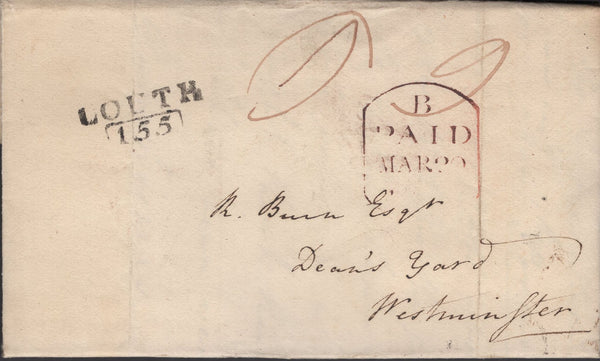 LOUTH
155
B
PAID
MAR 20
R. Burn Esqr
Dean's Yard
Westminster